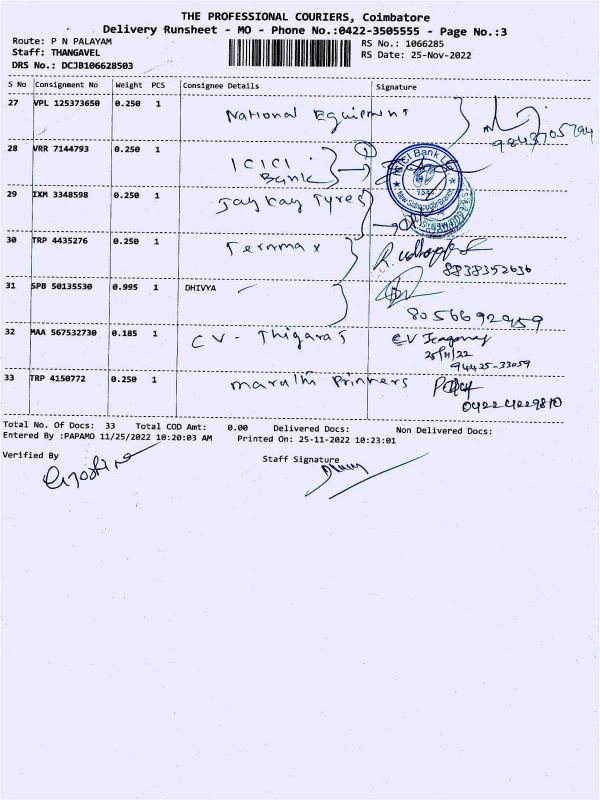 THE PROFESSIONAL COURIERS, Coimbatore
Delivery Runsheet - MO - Phone No.:0422-3505555 - Page No.:3
Route: P N PALAYAM
RS No.: 1066285
Staff: THANGAVEL
RS Date: 25-Nov-2022
DRS No.: DCJB106628503
S No Consignment No Weight PCS Consignee Details Signature
27 VPL 125373650 0.250 1 National Equipment
9843705794
28 VRR 7144793 0.250 1 ICICI Bank 1
ICICI Bank Ltd
29 IXM 3348598 0.250 1 Jaykay Tyres
30 TRP 4435276 0.250 1 Fernmax
8838352636
31 SPB 50135530 0.995 1 DHIVYA
8056692459
32 MAA 567532730 0.185 1 CV - Thigaras
CV
25/11/22
94425-33059
33 TRP 4150772 0.250 1 maruthi Printers
04224229810
Total No. Of Docs: 33 Total COD Amt: 0.00 Delivered Docs: Non Delivered Docs:
Entered By :PAPAMO 11/25/2022 10:20:03 AM Printed On: 25-11-2022 10:23:01
Verified By
Staff Signature